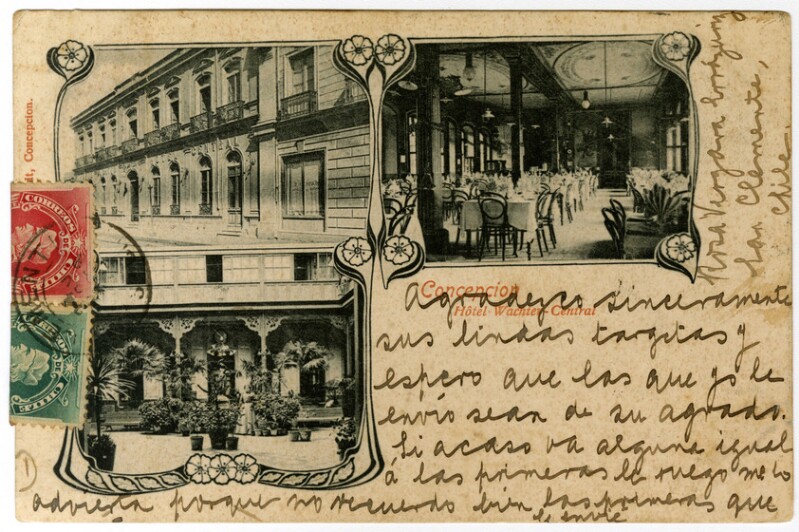 dt, Concepcion.
CORREOS DE
CHILE
CORREOS DE
CHILE
Concepcion
Hôtel Wachter-Central
Rosa Vergara
San Clemente,
Chile
Agradezco sinceramente
sus lindas targitas y
espero que las que yo le
envío sean de su agrado.
Si acaso va alguna igual
á las primeras le ruego me lo
advierta porque no recuerdo bien las primeras que
le envié